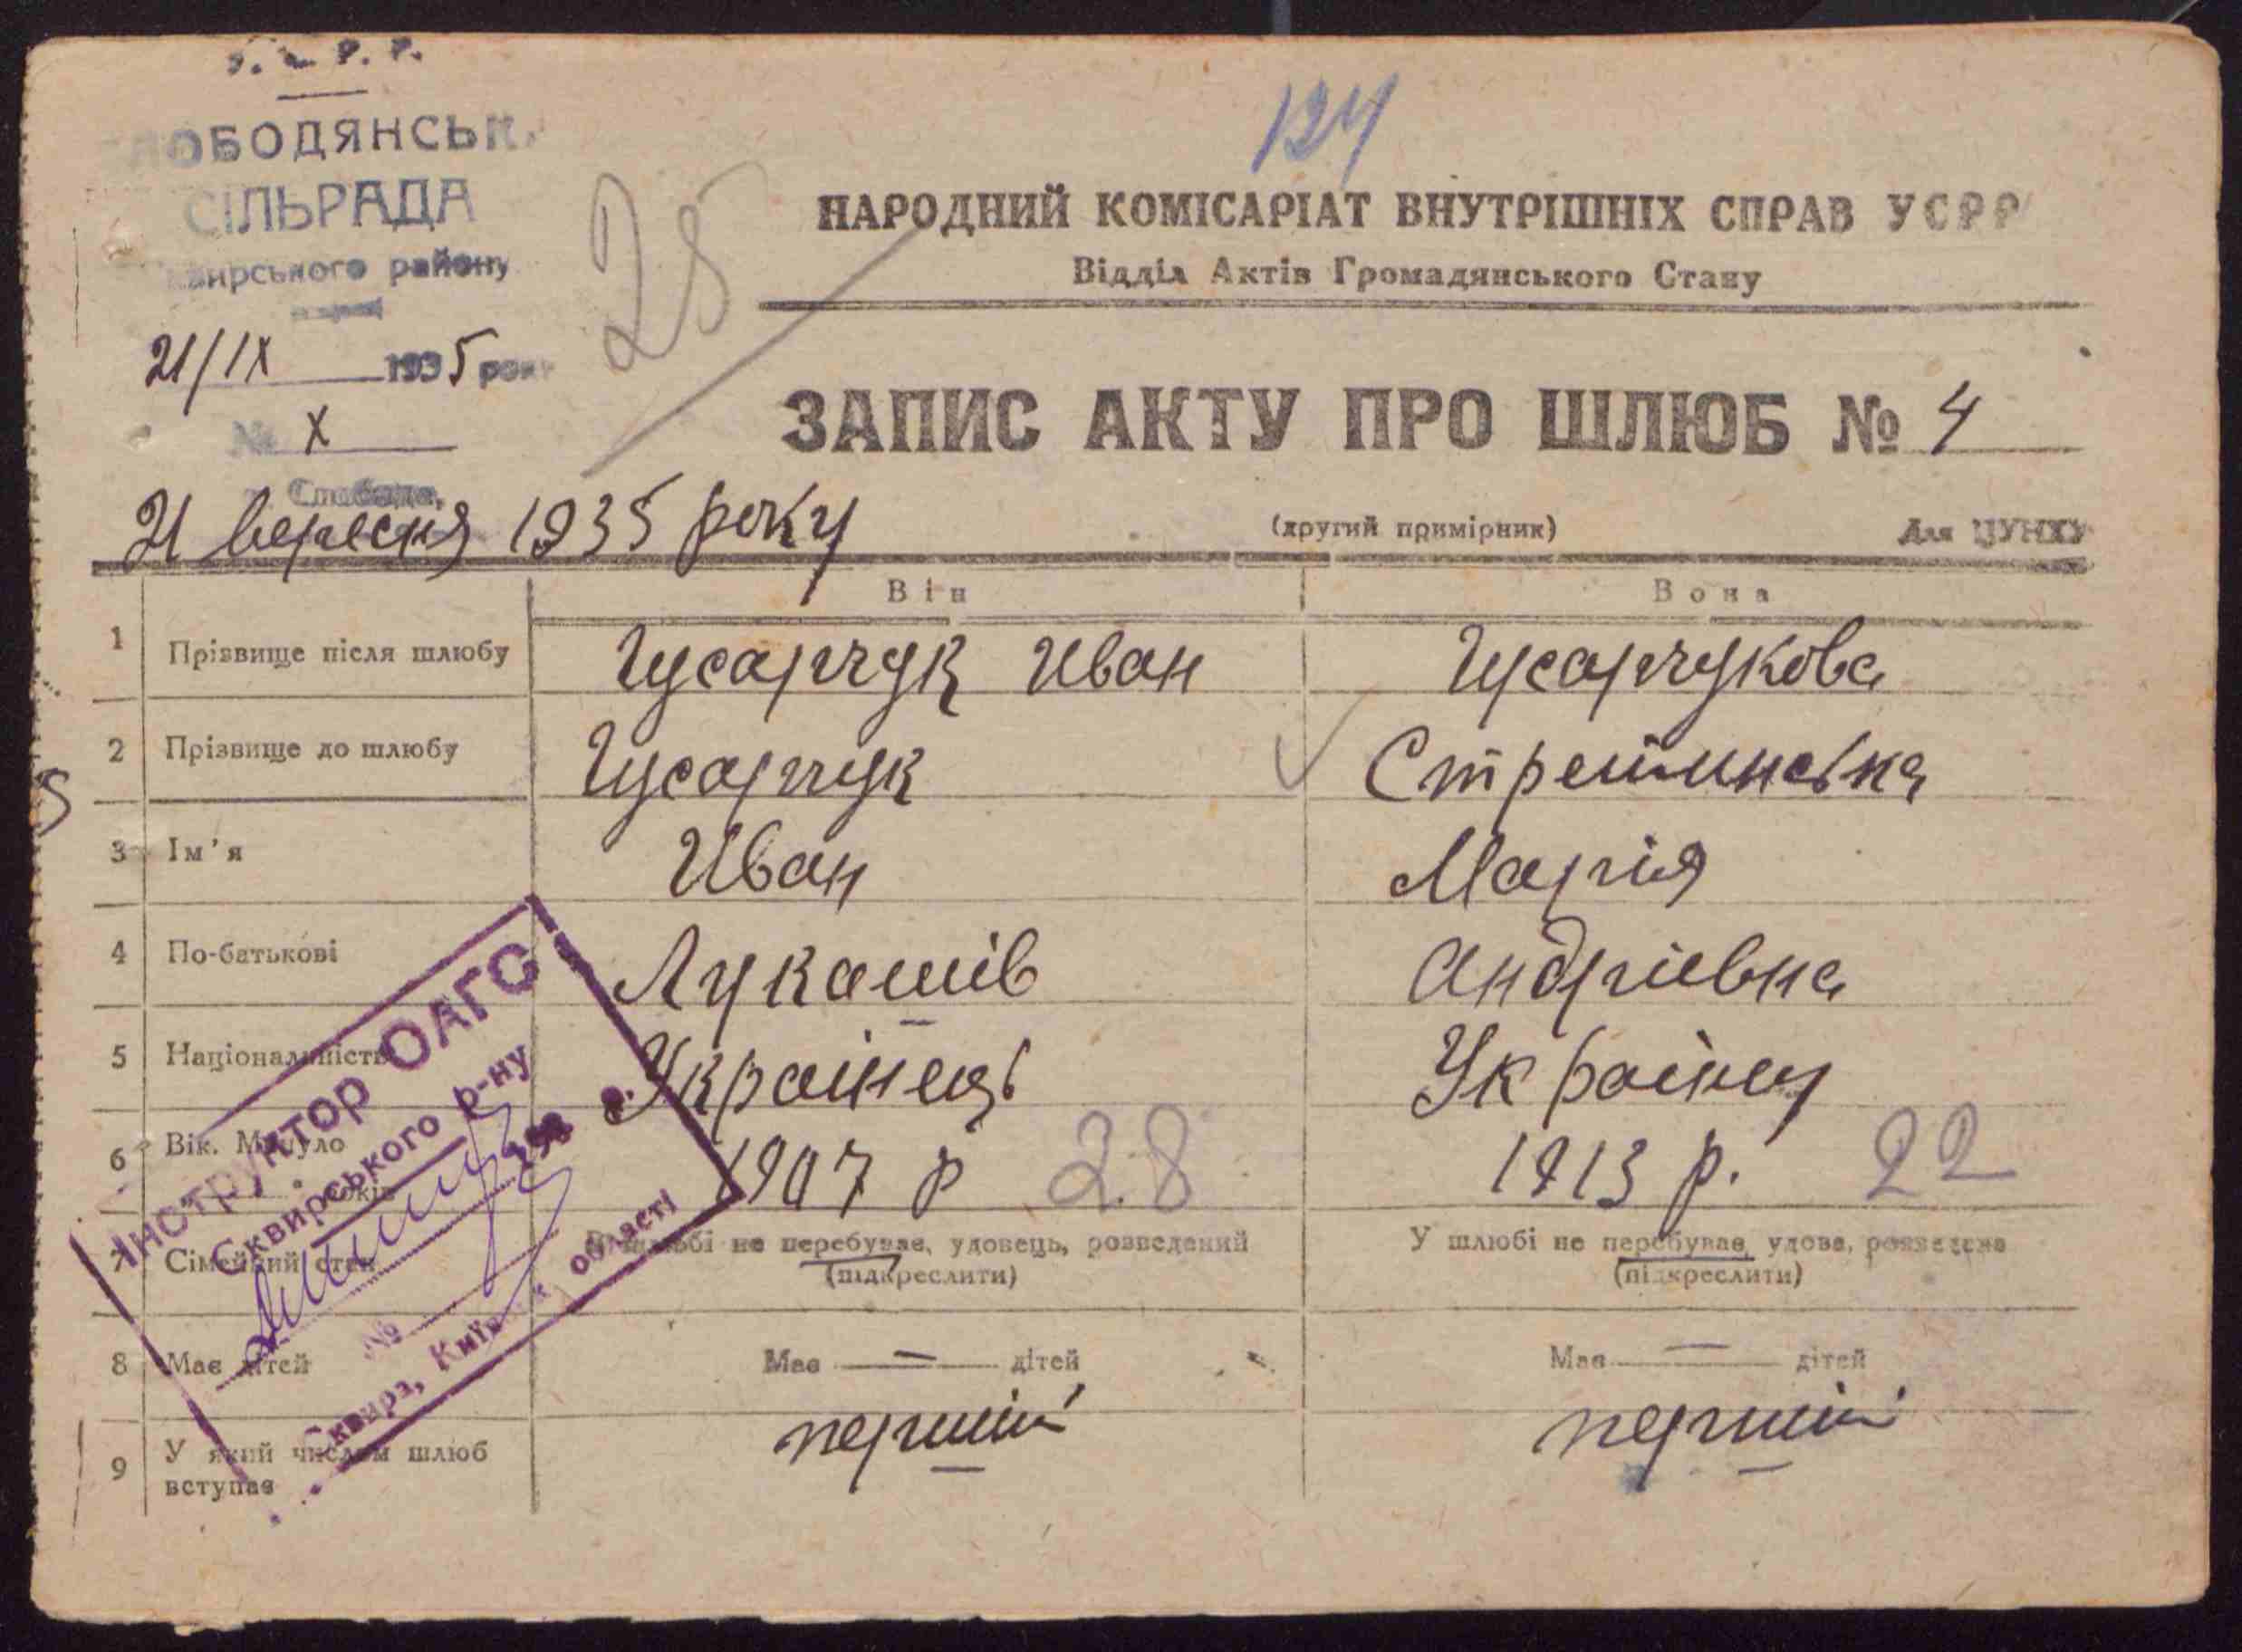 124
ОБОДЯНСЬК
СІЛЬРАДА
району
21/IX 1935 року
№ X
Слобода,
25
НАРОДНИЙ КОМІСАРІАТ ВНУТРІШНІХ СПРАВ УСРР
Відділ Актів Громадянського Стану
ЗАПИС АКТУ ПРО ШЛЮБ № 4
21 вересня 1935 року
(другий примірник) Для ЦУНХУ
Він Вона
1 Прізвище після шлюбу Гусарчук Иван Гусарчукова
2 Прізвище до шлюбу Гусарчук
3 Ім'я Иван Марія
4 По-батькові Лукашів Андріевна
5 Національність Украінець Украінц
6 Вік. Минуло років 1907 р 28 1913 р. 22
7 Сімейний стан У шлюбі не перебуває, удовець, розведений У шлюбі не перебуває, удова, розведена
(підкреслити) (підкреслити)
8 Має дітей Має — дітей Має — дітей
9 У який числом шлюб вступає перший перший
Інструктор ОАГС
Сквирського р-ну
193 р.
№
Сквира, Київ области